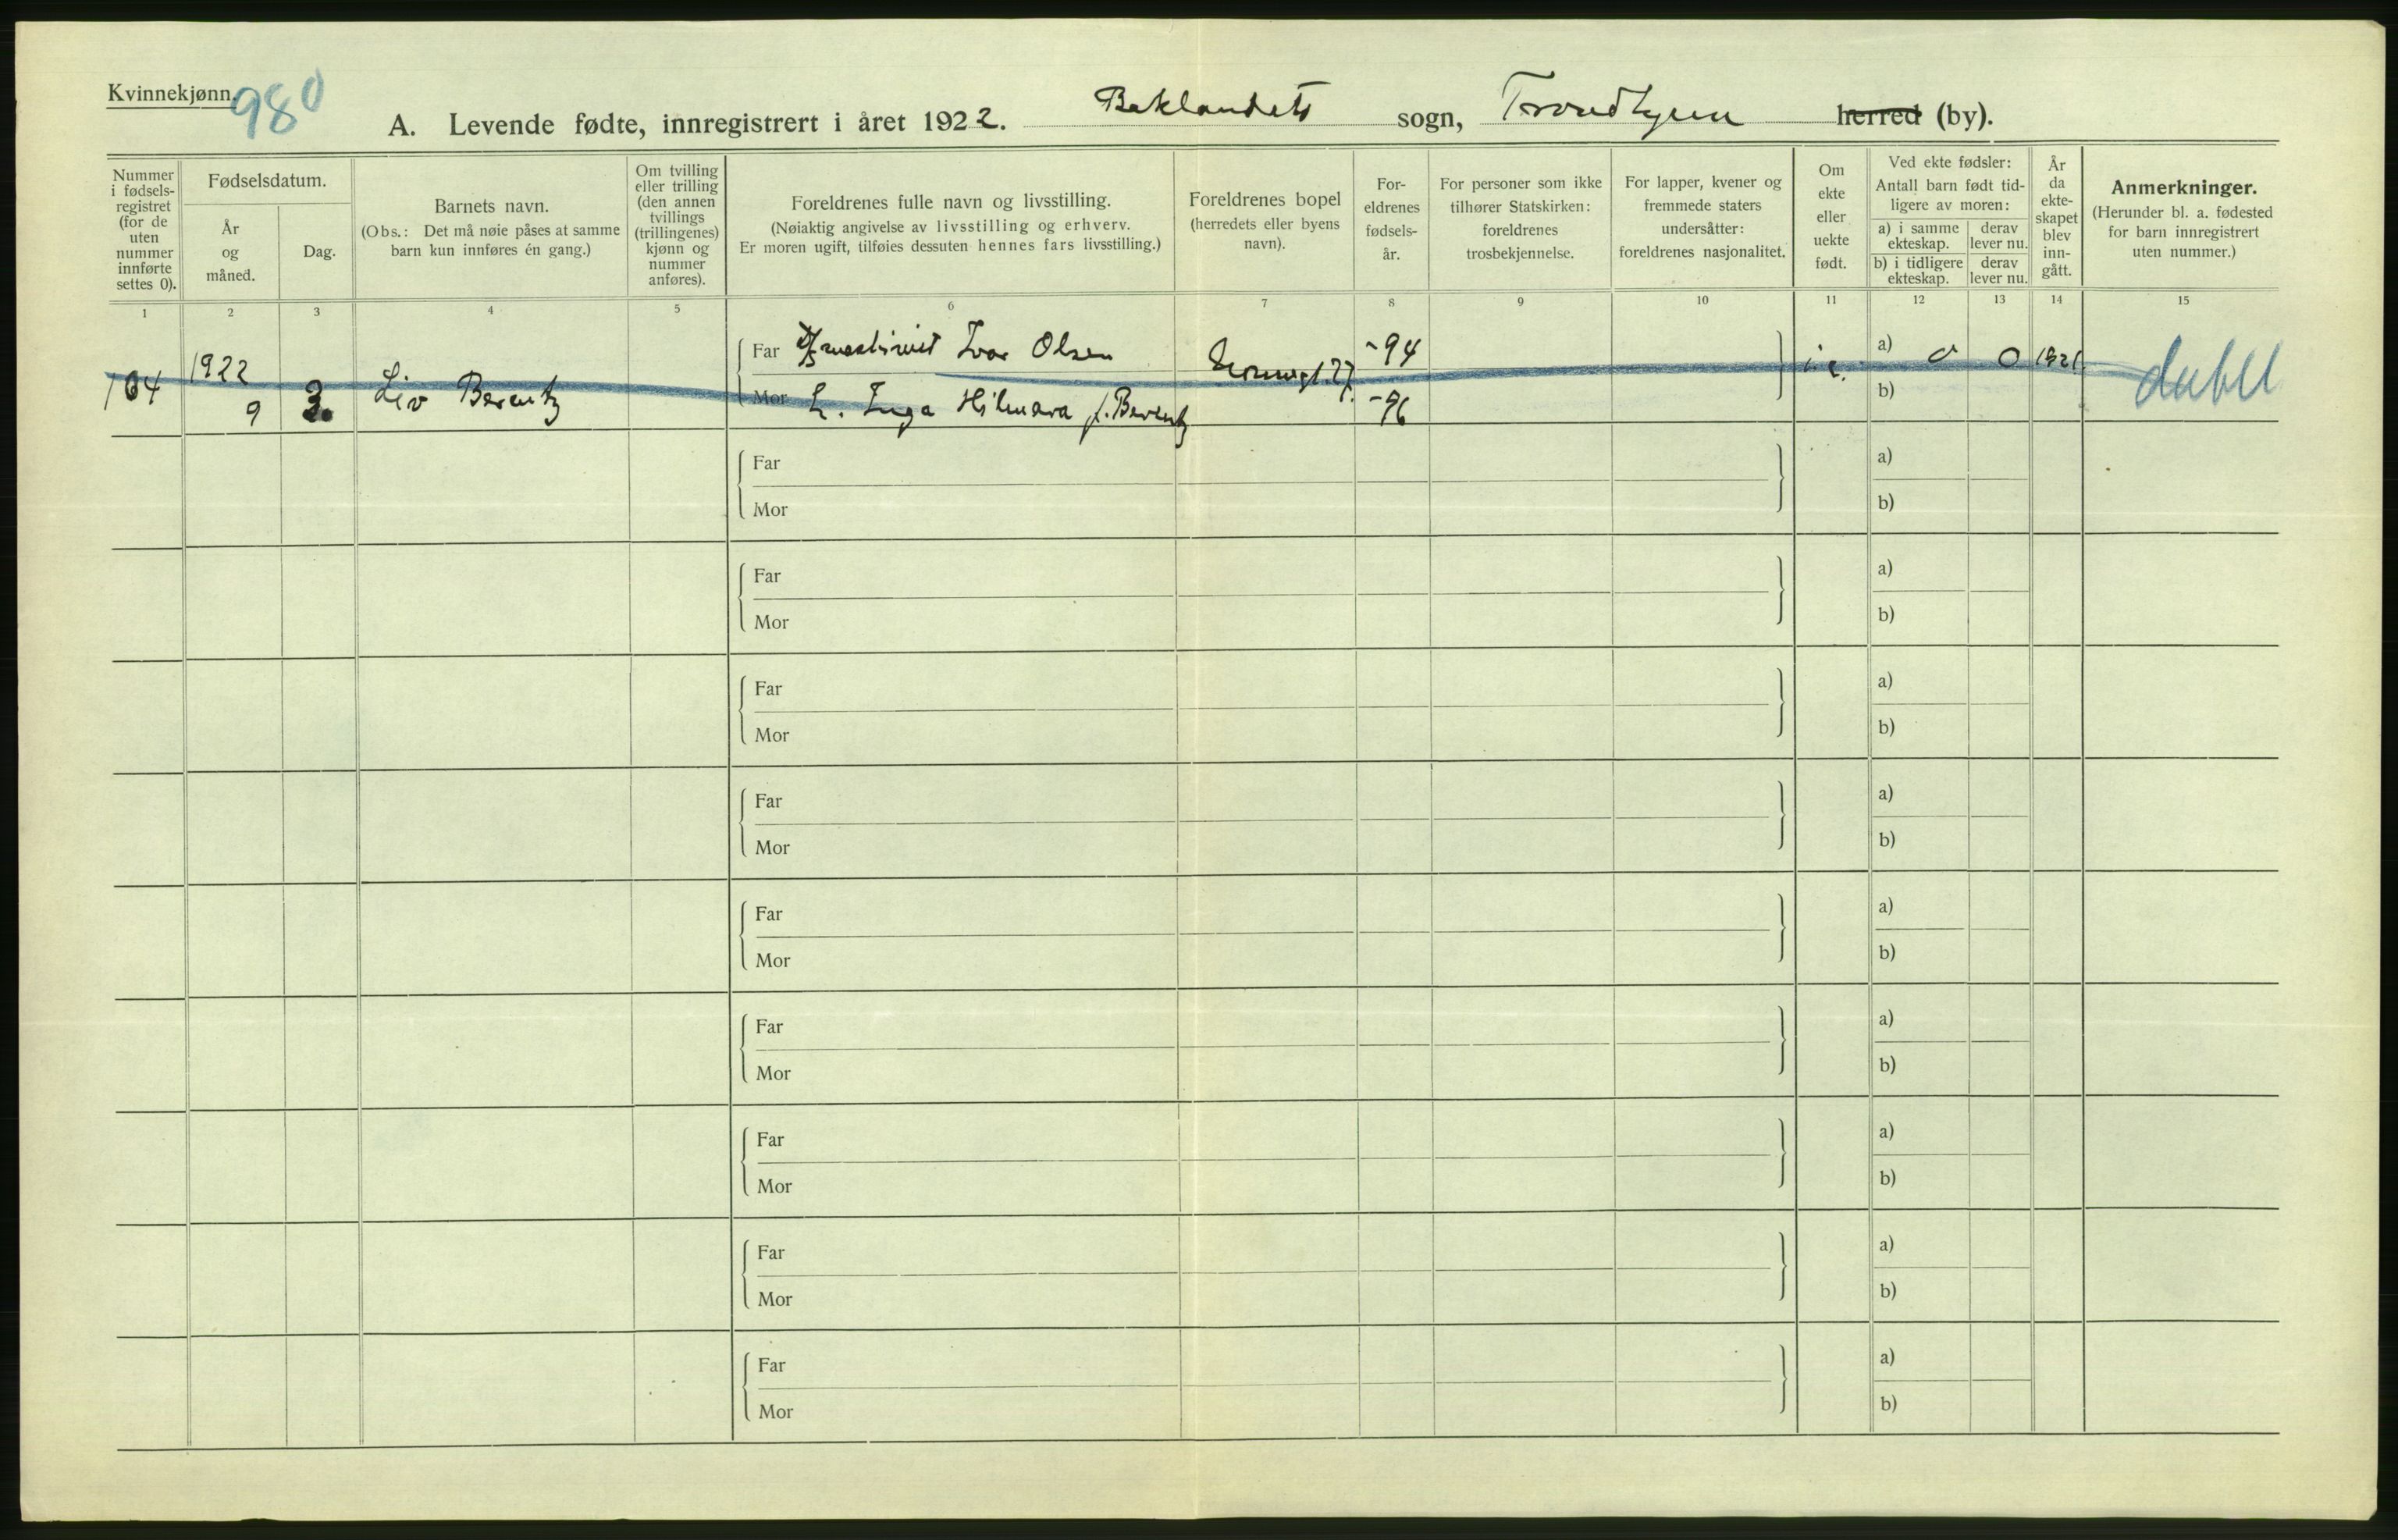 Kvinnekjønn.
980
A. Levende fødte, innregistrert i året 1922. Baklandets sogn, Trondhjem herred (by).
Nummer i fødselsregistret (for de uten nummer innførte settes 0).
Fødselsdatum.
År og måned.
Dag.
Barnets navn.
(Obs.: Det må nøie påses at samme barn kun innføres én gang.)
Om tvilling eller trilling (den annen tvillings (trillingenes) kjønn og nummer anføres).
Foreldrenes fulle navn og livsstilling.
(Nøiaktig angivelse av livsstilling og erhverv.
Er moren ugift, tilføies dessuten hennes fars livsstilling.)
Foreldrenes bopel
(herredets eller byens navn).
Foreldrenes fødselsår.
For personer som ikke tilhører Statskirken: foreldrenes trosbekjennelse.
For lapper, kvener og fremmede staters undersåtter: foreldrenes nasjonalitet.
Om ekte eller uekte født.
Ved ekte fødsler:
Antall barn født tidligere av moren:
a) i samme ekteskap.
derav lever nu.
b) i tidligere ekteskap.
derav lever nu.
År da ekteskapet blev inngått.
Anmerkninger.
(Herunder bl. a. fødested for barn innregistrert uten nummer.)
1 2 3 4 5 6 7 8 9 10 11 12 13 14 15
104
1922
9
3.
Liv Berentz
Far Ivar Olsen
Mor Inga Hilmara f. Berentz
27.
-94
-96
a) 0 0 1921
b)
dubl
Far
Mor
a)
b)
Far
Mor
a)
b)
Far
Mor
a)
b)
Far
Mor
a)
b)
Far
Mor
a)
b)
Far
Mor
a)
b)
Far
Mor
a)
b)
Far
Mor
a)
b)
Far
Mor
a)
b)